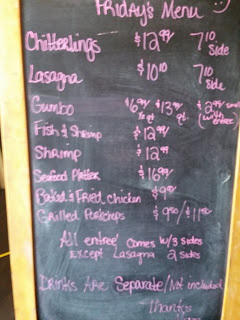 FRIDAY'S MENU
Chitterlings $12.99 7.10 side
LASAGNA $10.10 7.10 side
Gumbo $6.99/ ½ qt. $13.99/ qt. $2.99 small (with entree)
Fish & Shrimp $12.99
Shrimp $12.99
Seafood Platter $16.99
Baked & Fried Chicken $9.99
Grilled Porkchops $9.50/$11.00
All entree' comes w/3 sides
Except LASAGNA 2 sides
DRINKS ARE Separate/Not included
Thanks